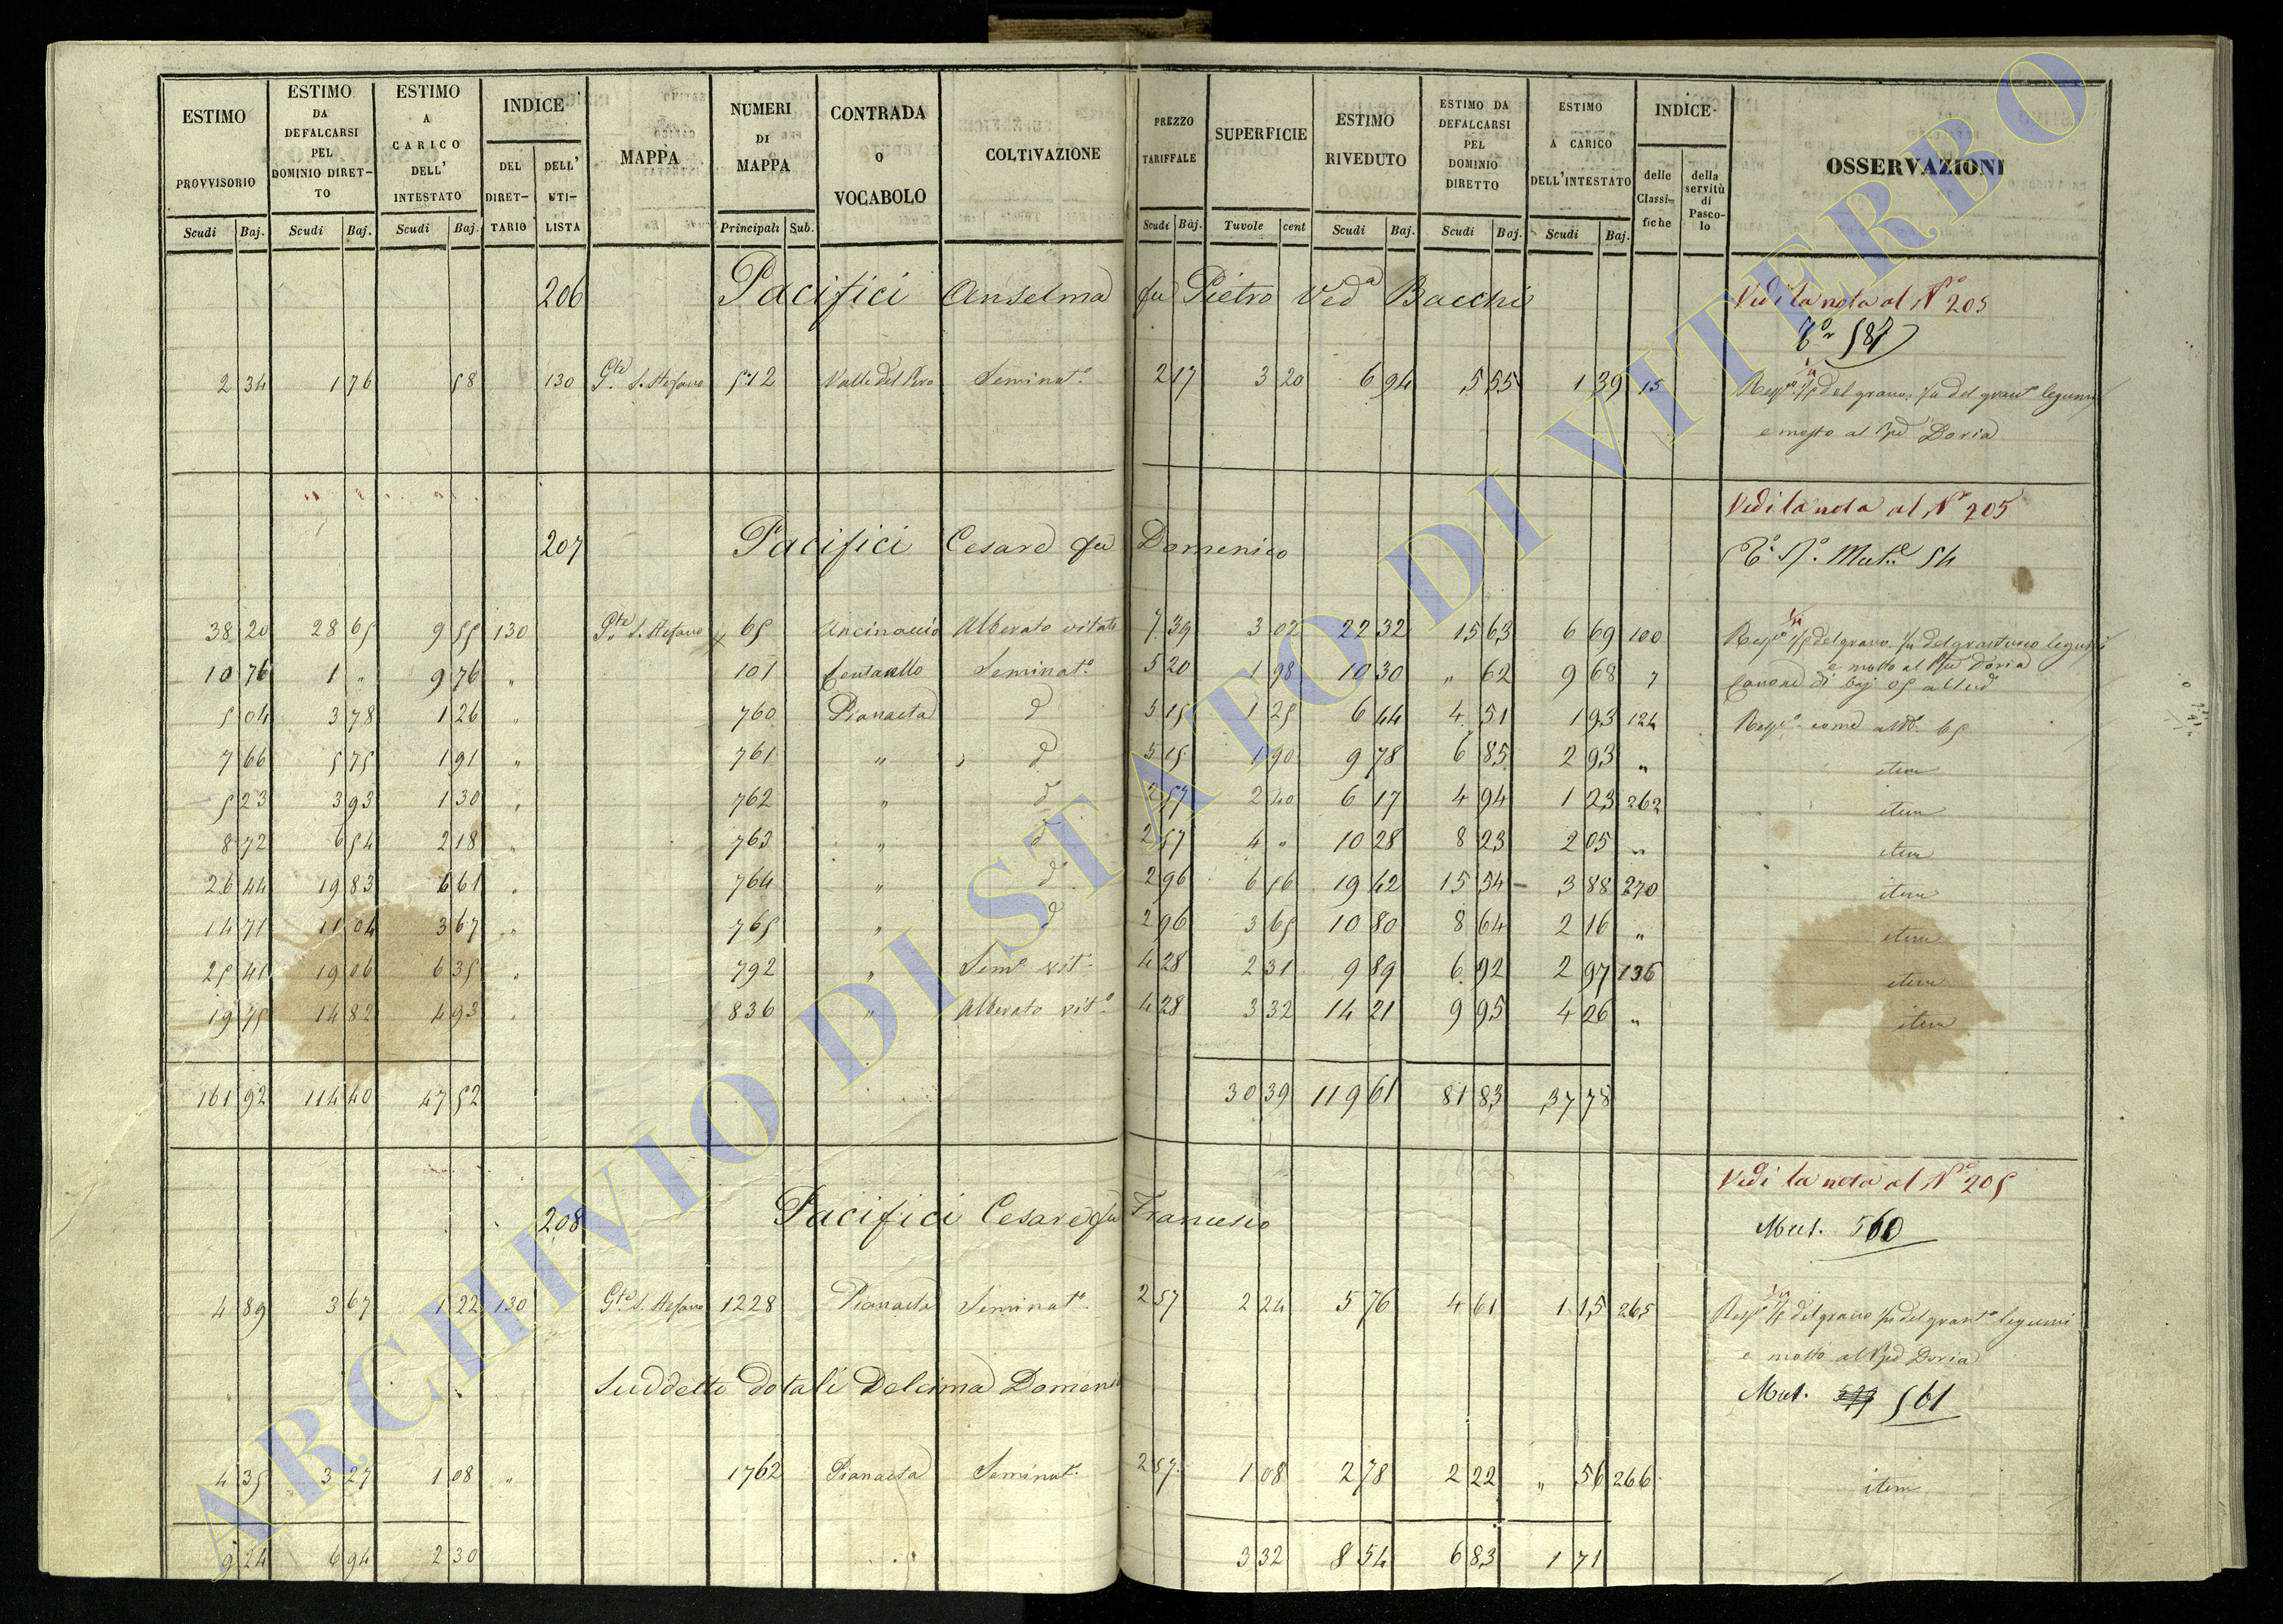 ESTIMO PROVVISORIO Scudi Baj. ESTIMO DA DEFALCARSI PEL DOMINIO DIRETTO Scudi Baj. ESTIMO A CARICO DELL' INTESTATO Scudi Baj. INDICE DEL DIRETTARIO DELL' UTILISTA MAPPA NUMERI DI MAPPA Principali Sub. CONTRADA O VOCABOLO COLTIVAZIONE PREZZO TARIFFALE Scudi Baj. SUPERFICIE Tavole cent ESTIMO RIVEDUTO Scudi Baj. ESTIMO DA DEFALCARSI PEL DOMINIO DIRETTO Scudi Baj. ESTIMO A CARICO DELL'INTESTATO Scudi Baj. INDICE delle Classifiche della servitù di Pascolo OSSERVAZIONI
206 Pacifici Anselma fu Pietro Ved.a Bacchi Vedi la nota al N.o 205
587
2 34 1 76 58 130 S. Stefano 512 Valle del Pero Seminat.o 2 17 3 20 6 94 5 55 1 39 15 del grano del gran.o legumi
e mosto al Doria
Vedi la nota al N.o 205
207 Pacifici Cesare fu Domenico Mut.e 54
38 20 28 65 9 55 130 S. Stefano 65 Ancinaccio Alberato vitato 7 39 3 02 22 32 15 63 6 69 100 del grano del granturco legumi
e mosto al Doria
10 76 1 " 9 76 " 101 Centarello Seminat.o 5 20 1 98 10 30 " 62 9 68 7 Canone di baj 05 al
5 04 3 78 1 26 " 760 Pianaeta d 5 15 1 25 6 44 4 51 1 93 124 come al N.o 65
7 66 5 75 1 91 " 761 " d 5 15 1 90 9 78 6 85 2 93 " item
5 23 3 93 1 30 " 762 " d 2 57 2 40 6 17 4 94 1 23 262 item
8 72 6 54 2 18 " 763 " d 2 57 4 " 10 28 8 23 2 05 " item
26 44 19 83 6 61 " 764 " d 2 96 6 56 19 42 15 54 3 88 270 item
14 71 11 04 3 67 " 765 " d 2 96 3 65 10 80 8 64 2 16 " item
25 41 19 06 6 35 " 792 " Sem.o vit.o 4 28 2 31 9 89 6 92 2 97 136 item
19 75 14 82 4 93 " 836 " Alberato vit.o 4 28 3 32 14 21 9 95 4 26 " item
161 92 114 40 47 52 30 39 119 61 81 83 37 78
Vedi la nota al N.o 205
208 Pacifici Cesare fu Francesco Mut. 560
4 89 3 67 1 22 130 S. Stefano 1228 Pianaeta Seminat.o 2 57 2 24 5 76 4 61 1 15 265 del grano del gran.o legumi
e mosto al Doria
Suddetto dotali Delcima Domen Mut. 561
4 35 3 27 1 08 " 1762 Pianaeta Seminat.o 2 57 1 08 2 78 2 22 " 56 266 item
9 24 6 94 2 30 3 32 8 54 6 83 1 71
ARCHIVIO DI STATO DI VITERBO